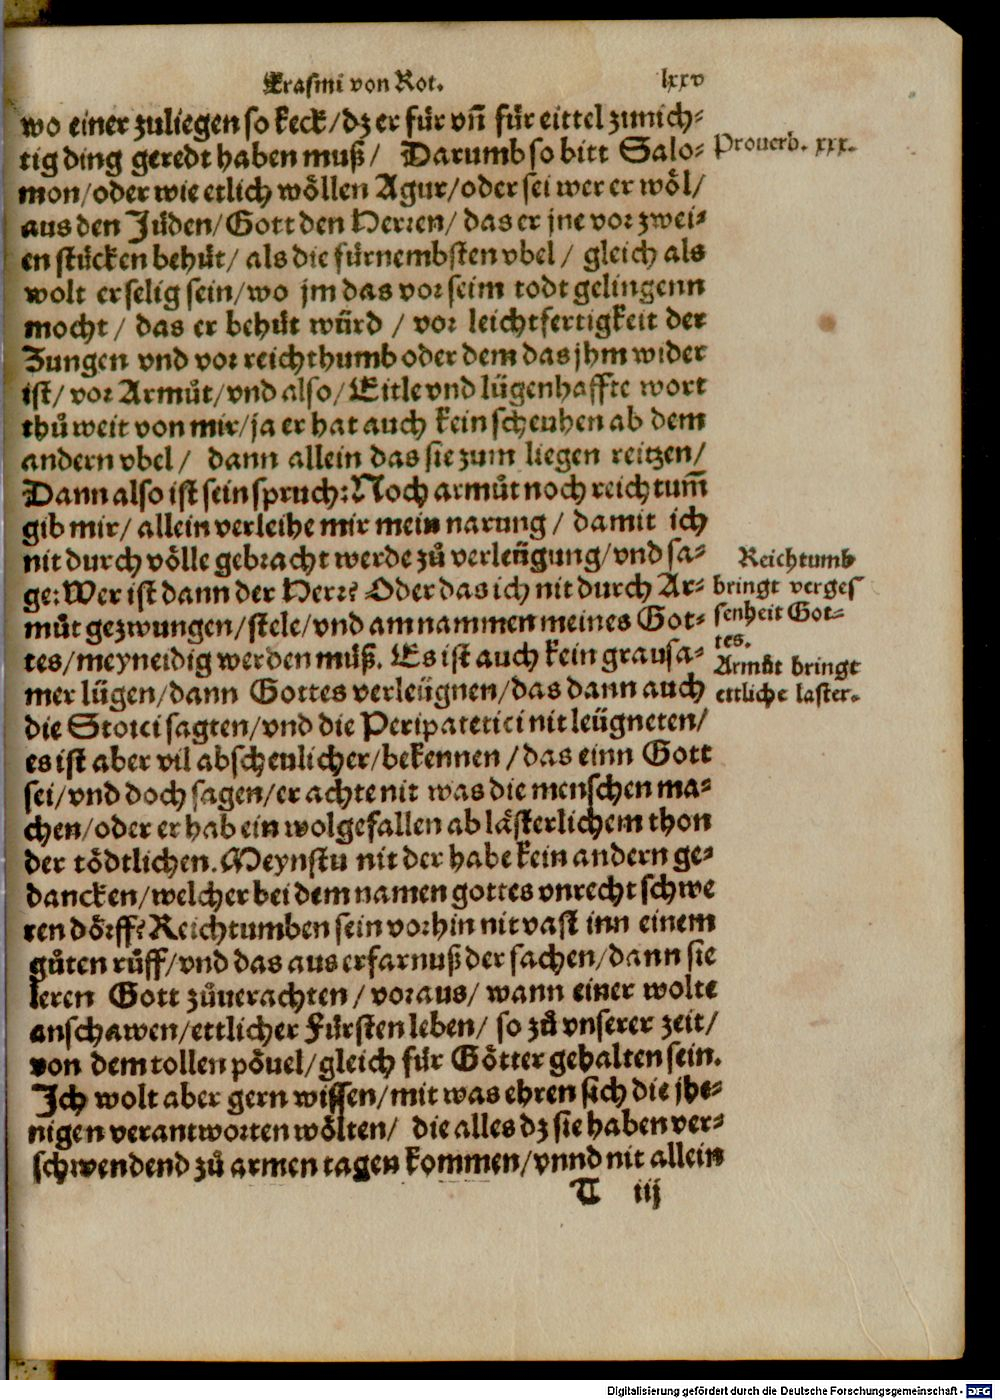 Erasmi von Rot. lxxv
wo einer zuliegen so keck/dz er für vñ für eittel zunich-
tig ding geredt haben muß/ Darumb so bitt Salo-
mon/oder wie etlich wöllen Agur/oder sei wer er wöl/
aus den Jüden/Gott den Herren/das er jne vor zwei-
en stücken behüt/als die fürnembsten vbel/ gleich als
wolt er selig sein/wo jm das vor seim todt gelingenn
mocht/ das er behüt würd / vor leichtfertigkeit der
Zungen vnd vor reichthumb oder dem das jhm wider
ist/ vor Armůt/vnd also/Eitle vnd lügenhaffte wort
thů weit von mir/ja er hat auch kein scheuhen ab dem
andern vbel/ dann allein das sie zum liegen reitzen/
Dann also ist sein spruch: Noch armůt noch reichtum̄
gib mir/ allein verleihe mir mein narung/ damit ich
nit durch völle gebracht werde zů verleügung/vnd sa-
ge: Wer ist dann der Herr? Oder das ich nit durch Ar-
můt gezwungen/stele/vnd am nammen meines Got-
tes/meyneidig werden můß. Es ist auch kein grausa-
mer lügen/dann Gottes verleügnen/das dann auch
die Stoici sagten/vnd die Peripatetici nit leügneten/
es ist aber vil abscheulicher/bekennen/das einn Gott
sei/vnd doch sagen/er achte nit was die menschen ma-
chen/oder er hab ein wolgefallen ab lästerlichem thon
der tödtlichen. Meynstu nit der habe kein andern ge-
dancken/welcher bei dem namen gottes vnrecht schwe
ren dörff? Reichtumben sein vorhin nit vast inn einem
gůten růff/vnd das aus erfarnuß der sachen/dann sie
leren Gott zůuerachten/voraus/wann einer wolte
anschawen/ettlicher Fürsten leben/ so zů vnserer zeit/
von dem tollen pövel/gleich für Götter gehalten sein.
Ich wolt aber gern wissen/mit was ehren sich die jhe-
nigen verantworten wölten/ die alles dz sie haben ver-
schwendend zů armen tagen kommen/vnnd nit allein
U iij
Prouerb. xxx.
Reichtumb
bringt verges
senheit Got-
tes.
Armůt bringt
ettliche laster.
Digitalisierung gefördert durch die Deutsche Forschungsgemeinschaft - DFG